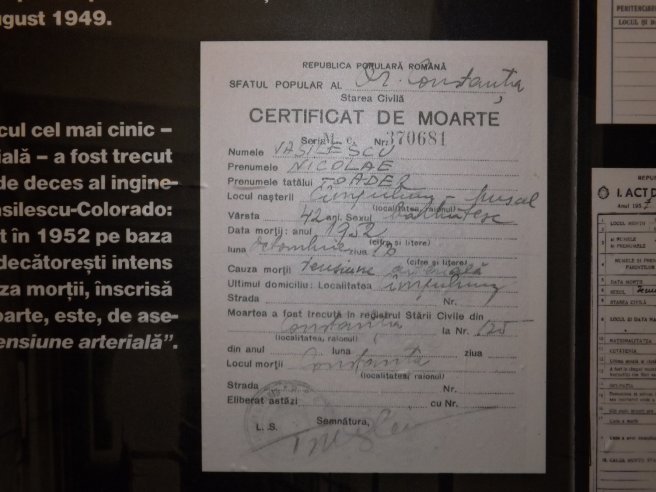 ugust 1949.
cul cel mai cinic –
ială – a fost trecut
de deces al ingine-
asilescu-Colorado:
t în 1952 pe baza
decătorești intens
za morții, înscrisă
oarte, este, de ase-
ensiune arterială”.
REPUBLICA POPULARĂ ROMÂNĂ
SFATUL POPULAR AL Or. Constanța
Starea Civilă
CERTIFICAT DE MOARTE
Seria M.c. Nr. 370681
Numele VASILESCU
Prenumele NICOLAE
Prenumele tatălui TOADER
Locul nașterii Câmpulung - Muscel
(localitatea, raionul)
Vârsta 42 ani. Sexul bărbătesc
Data morții: anul 1952
(cifre și litere)
luna Octombrie ziua 16
(cifre și litere)
Cauza morții tensiune arterială
Ultimul domiciliu: Localitatea Câmpulung
Strada Nr.
Moartea a fost trecută în registrul Stării Civile din
Constanța la Nr. 125
(localitatea, raionul)
din anul luna ziua
Locul morții Constanța
(localitatea, raionul)
Strada Nr.
Eliberat astăzi cu Nr.
L. S. Semnătura,
PENITENCIAR
LOCUL ȘI D
REPU
I. ACT D
Anul 195
LOCUL MORȚII
NUMELE
ȘI PRENUMELE
NUMELE ȘI PRE
DATA MORȚII
SEXUL
STAREA CIVILĂ
LOCUL ȘI DATA NA
NAȚIONALITATEA
CETĂȚENIA
OCUPAȚIA